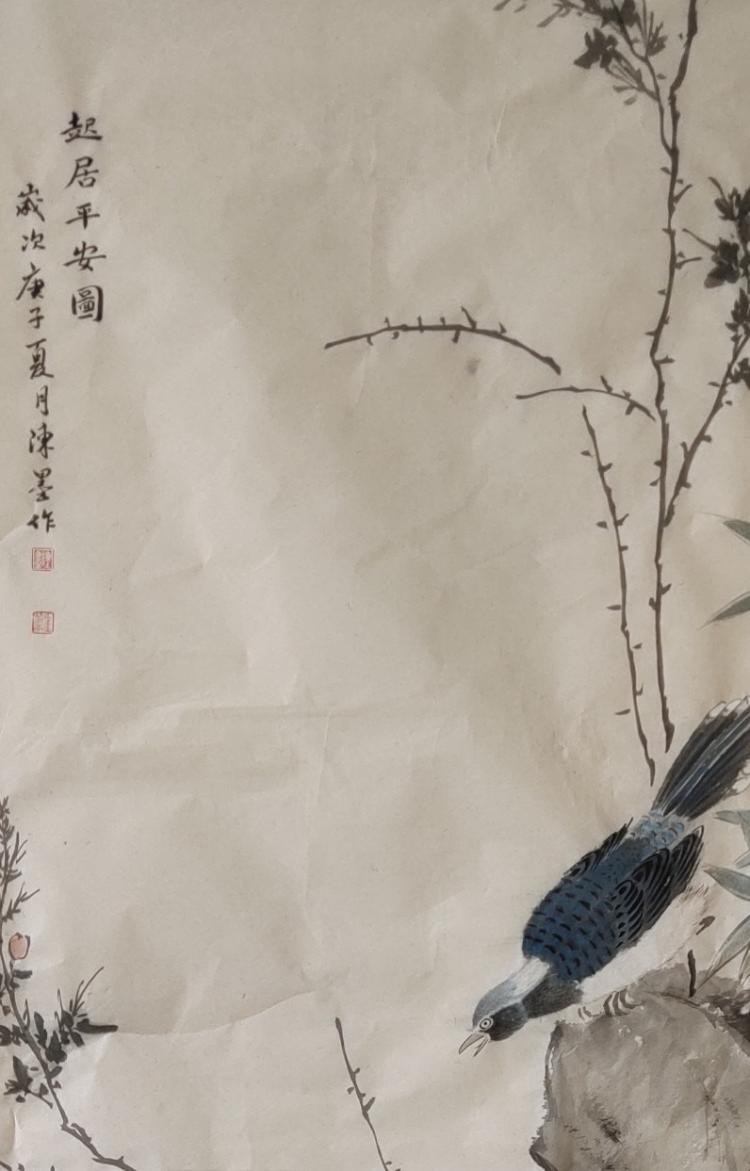 起居平安圖
歲次庚子夏月陳墨作